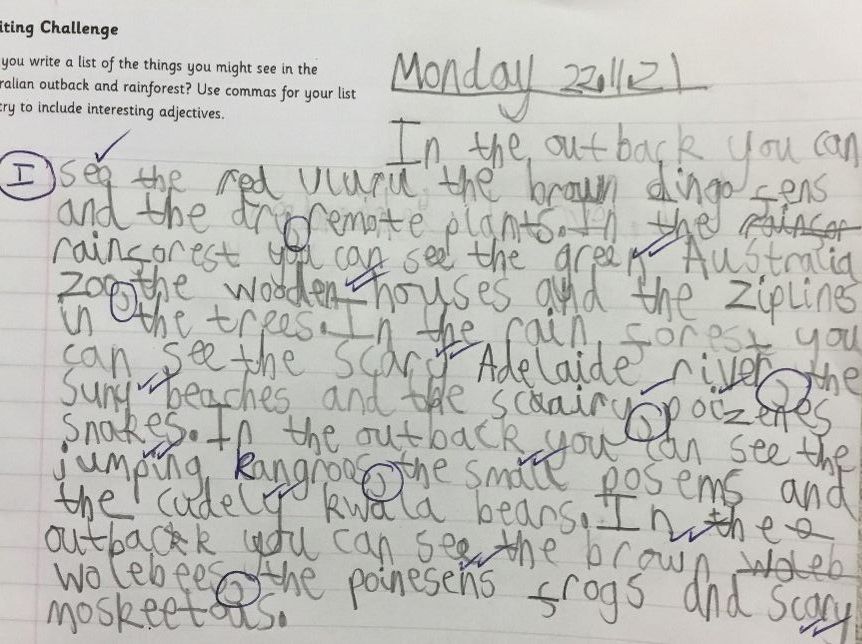 iting Challenge
you write a list of the things you might see in the
ralian outback and rainforest? Use commas for your list
try to include interesting adjectives.
Monday 22.11.21
In the outback you can
I see the red uluru the brown dingo fens
and the dry, remote plants. In the rainfor
rainforest you can see the green Australia
zoo, the wooden houses and the ziplines
in the trees. In the rain forest you
can see the scary Adelaide river, the
suny beaches and the scairy, poizenes
snakes. In the outback you can see the
jumping kangroos, the small posems and
the cudely kwala bears. In the
outback you can see the brown woleb
wolebees, the poinesens frogs and scary
moskeetous.